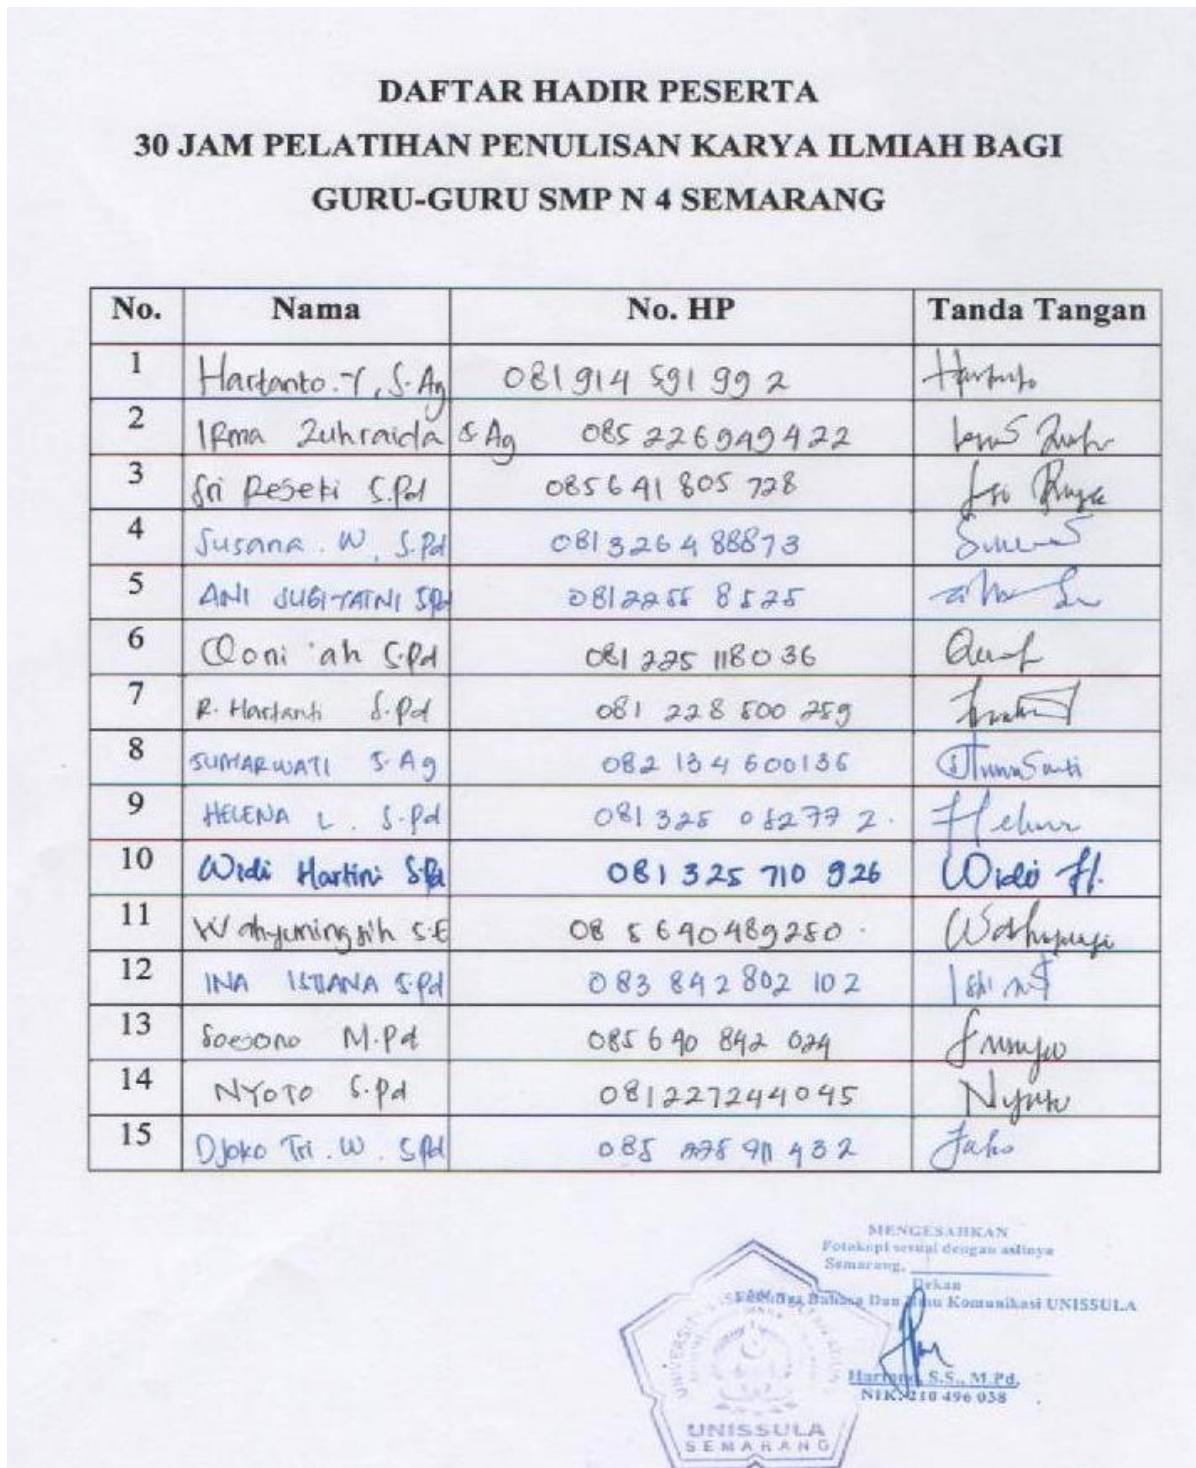 DAFTAR HADIR PESERTA
30 JAM PELATIHAN PENULISAN KARYA ILMIAH BAGI
GURU-GURU SMP N 4 SEMARANG
No. Nama No. HP Tanda Tangan
1 Hartanto.Y, S.Ag 081 914 591 99 2
2 IRma Zuhraida S Ag 085 226949422
3 Sri Reseki S.Pd 085641 805 728
4 Susana. W, S.Pd 081 326 4 88873
5 ANI SUGIYATNI S.Pd 0812255 8525
6 Qoni 'ah S.Pd 081 225 118036
7 R. Hartanti S.Pd 081 228 500 259
8 SUMARWATI S.Ag 082 134 600136
9 HELENA L. S.Pd 081 325 05277 2.
10 Widi Hartini S.Pd 081 325 710 926 Widi H.
11 Wahyuningsih S.E 08 5640489250.
12 INA ISTIANA S.Pd 083 842 802 102
13 M.Pd 085 640 842 024
14 NYOTO S.Pd 081227244045
15 Djoko Tri. W. S.Pd 085 432
MENGESAHKAN
Fotokopi sesuai dengan aslinya
Semarang,
Dekan
Bahasa Dan Ilmu Komunikasi UNISSULA
Hartono, S.S., M.Pd.
NIK. 210 496 038
UNISSULA
SEMARANG